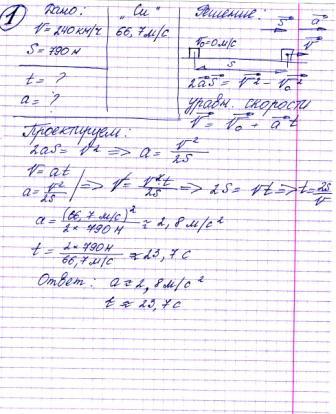 1
Дано: "Си" Решение:
V = 240 км/ч 66,7 м/с
S = 790 м V₀ = 0 м/с
t = ? 2aS = V² - V₀²
a = ? уравн. скорости
V = V₀ + at
Проектируем:
2aS = V² => a = V²/2S
V = at
a = V²/2S => V = V²t/2S => 2S = Vt => t = 2S/V
a = (66,7 м/с)²/2 × 790 м ≈ 2,8 м/с²
t = 2 × 790 м/66,7 м/с ≈ 23,7 с
Ответ: a ≈ 2,8 м/с²
t ≈ 23,7 с